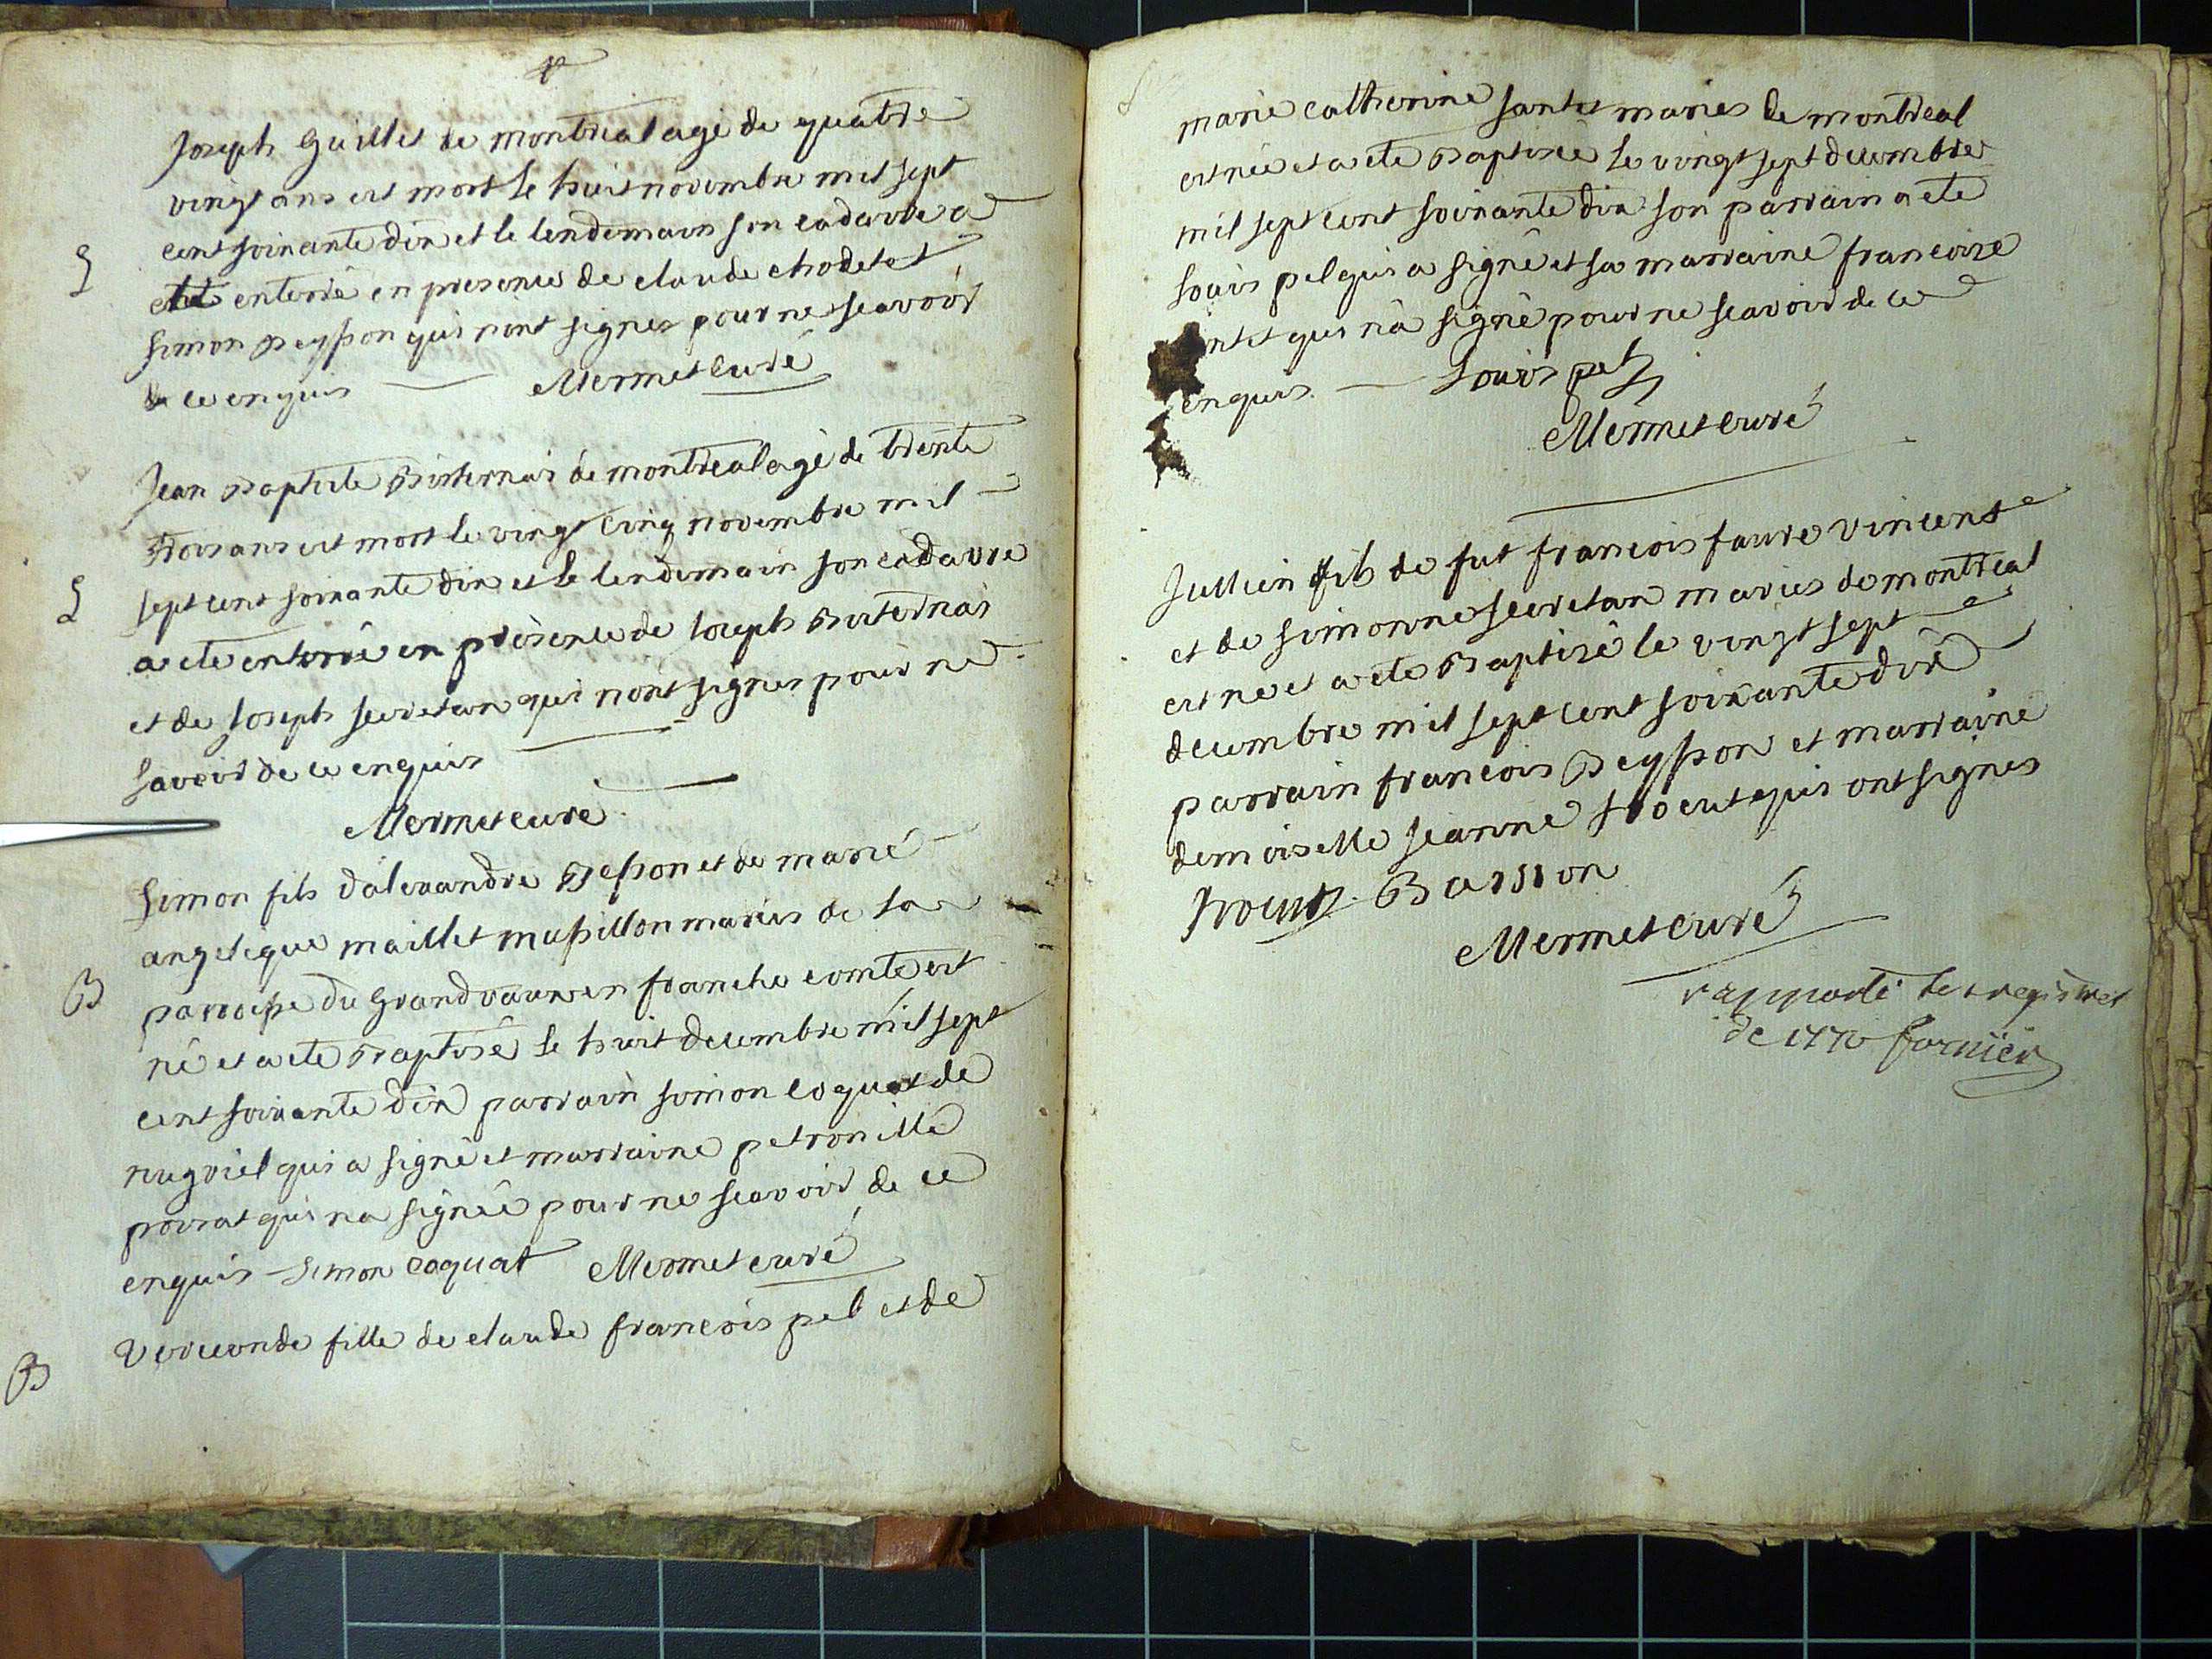 Joseph Guillet de montreal agé de quatre
vingt ans est mort le huit novembre mil sept
cent soixante dix et le lendemain son cadavre a
eté enterré en presence de claude chodet et
S
Simon Beysson qui nont signes pour ne scavoir
de ce enquis Mermet curé
Jean Baptiste Bisternai de montreal agé de trente
trois ans est mort le vingt cinq novembre mil
S
sept cent soixante dix et le lendemain son cadavre
a eté enterré en présence de Joseph Bisternai
et de Joseph secretan qui nont signes pour ne
savoir de ce enquis
Mermet curé
Simon fils d'alexandre Besson et de marie
angelique maillet massillon mariés de la
B
parroisse du Grandvaux en franche comté est
né et a eté Baptisé le huit decembre mil sept
cent soixante dix parrain simon coquat de
nugriel qui a signé et marraine petronille
poirat qui na signéé pour ne scavoir de ce
enquis Simon coquat Mermet curé
B
Vereconde fille de claude francois pel et de
marie catherine santet mariés de montreal
est née et a eté Baptiséé le vingt sept decembre
mil sept cent soixante dix son parrain a eté
Louis pel qui a signé et sa marraine francoise
qui n'a signé pour ne scavoir de ce
enquis Louis pel
Mermet curé
Jullien fils de fut francois favre vincent
et de simonne secretan mariés de montreal
est né et a eté Baptisé le vingt sept
decembre mil sept cent soixante dix
parrain francois Beysson et marraine
demoiselle Jeanne qui ont signes
Basson
Mermet curé
rapporté les registres
de 1770